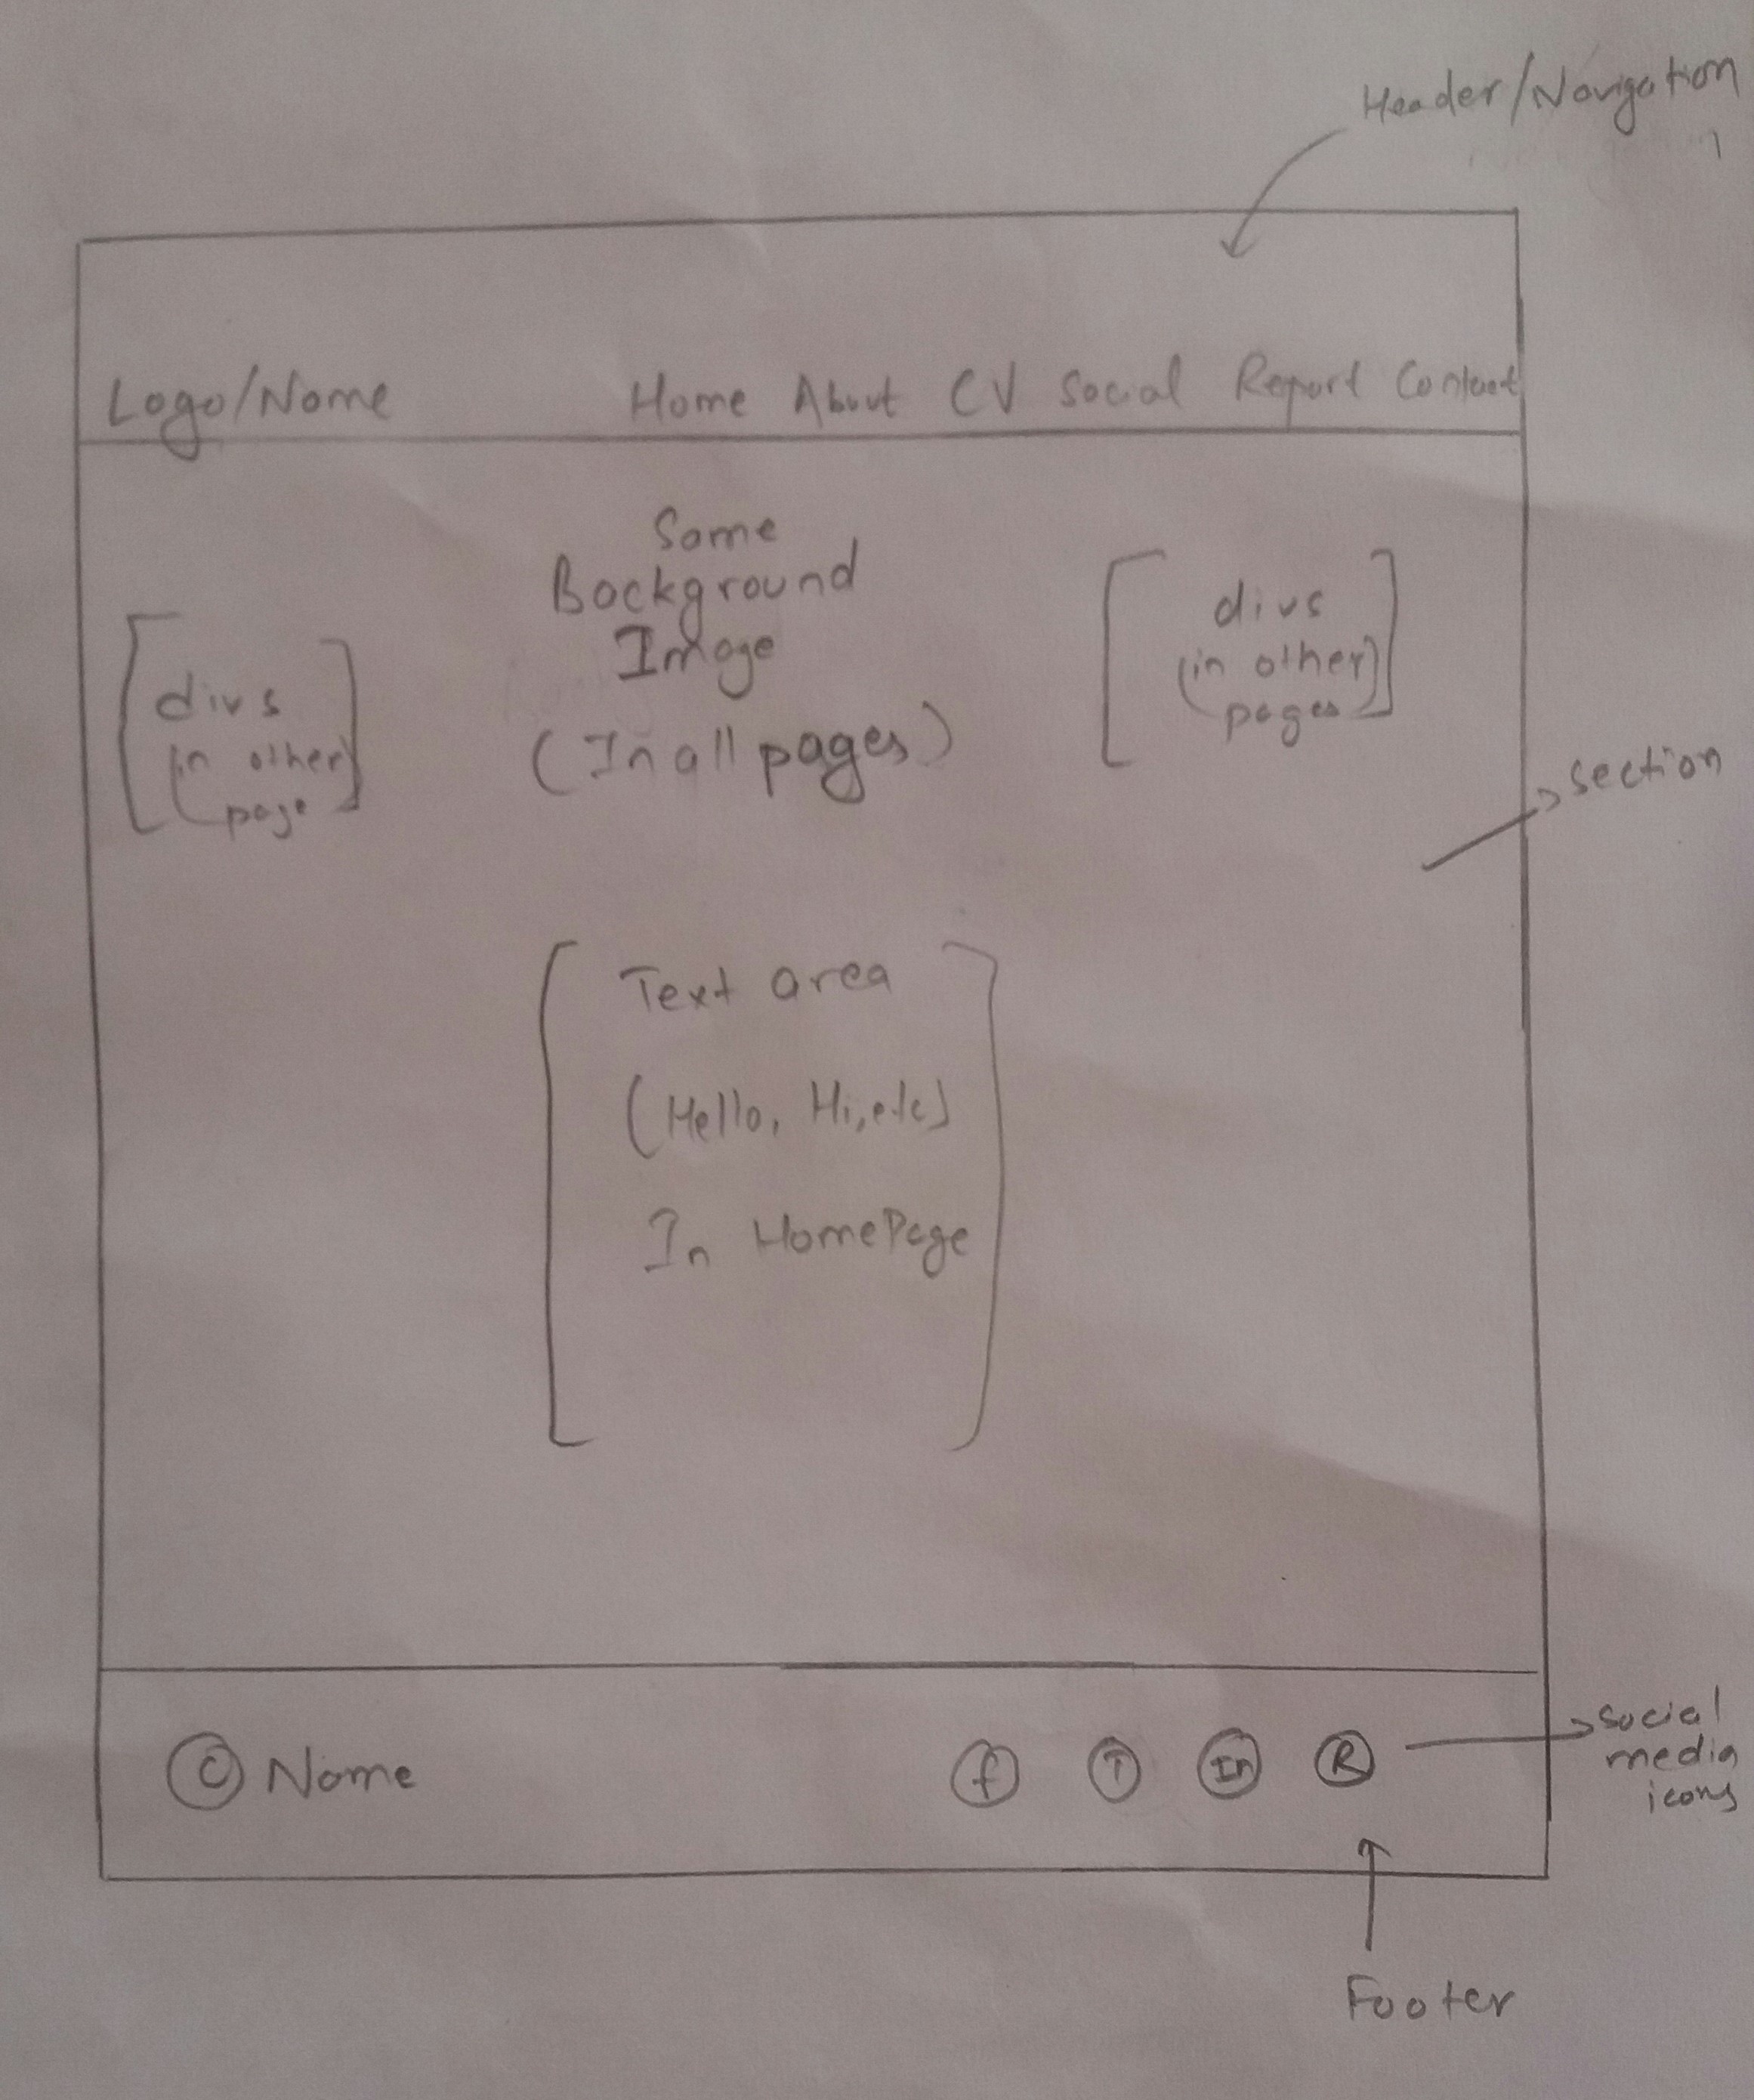 Header/Navigation
Logo/Name
Home About CV Social Report Contact
Some
Background
Image
(In all pages)
divs
(in other
page
divs
(in other)
pages
section
Text area
(Hello, Hi, etc)
In HomePage
© Name
f T In R
social
media
icons
Footer